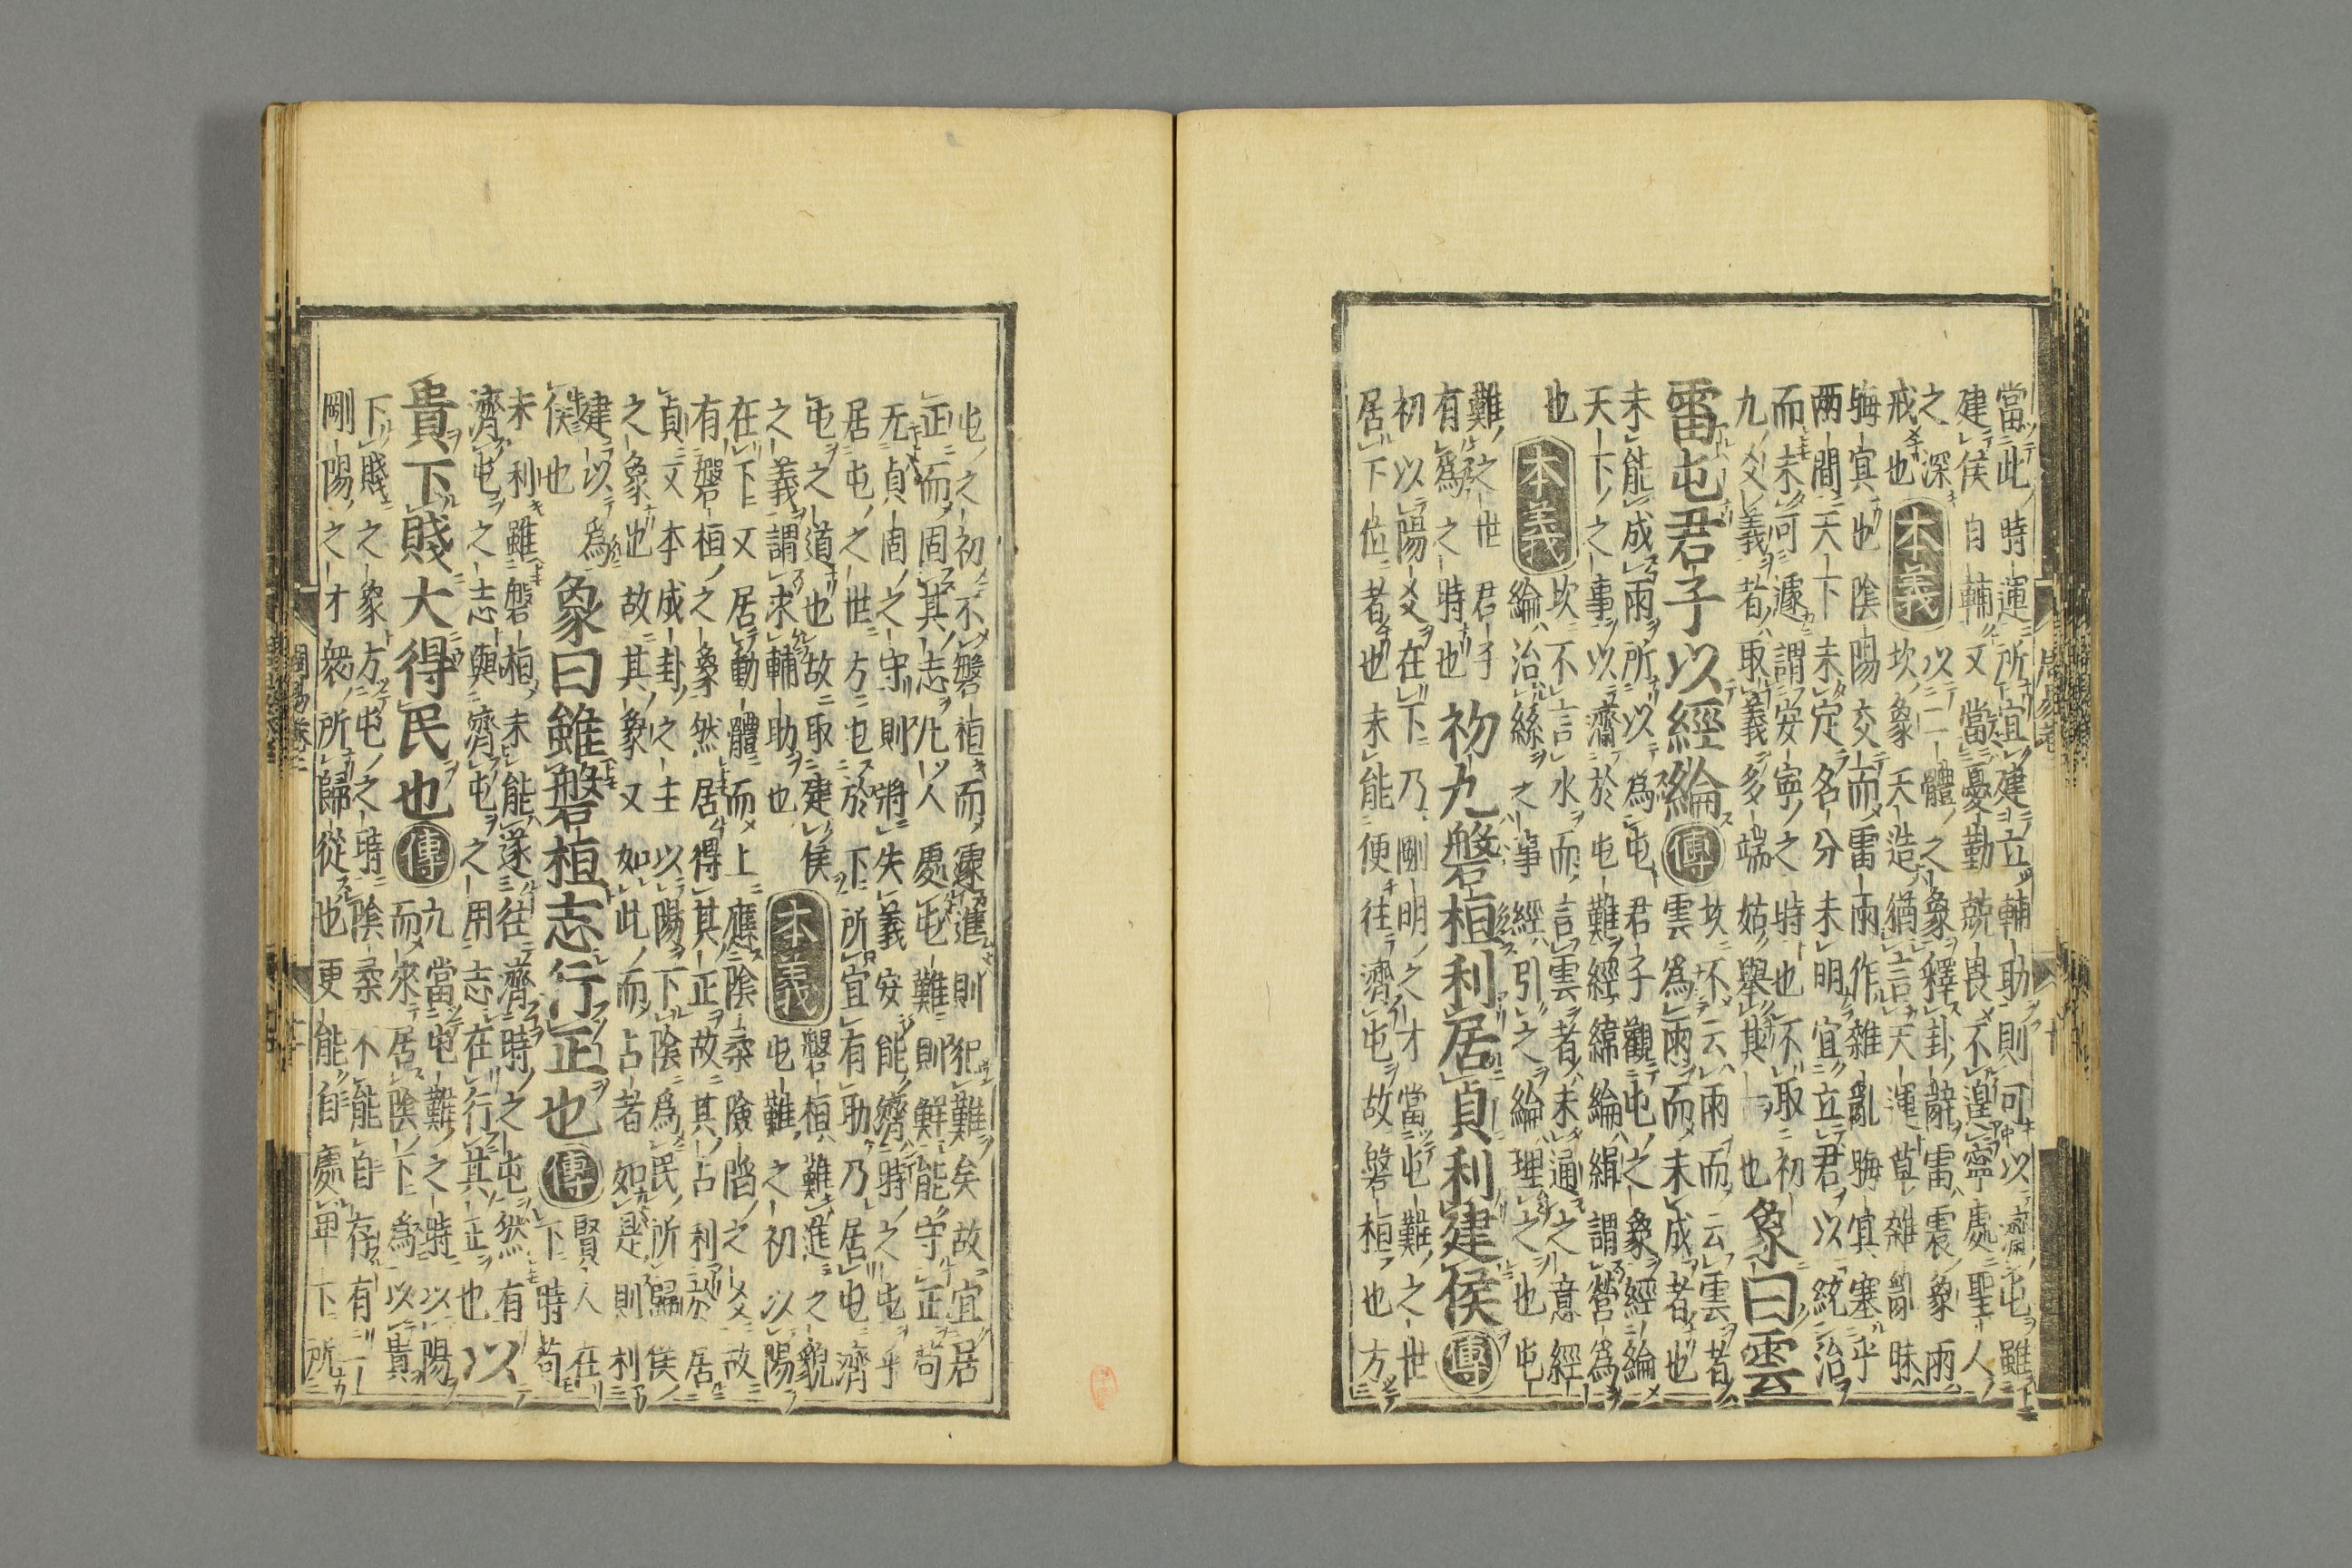 當此時運所宜建立輔助則可以濟屯雖
建侯自輔又當憂勤兢畏不遑寧處聖人
之深
戒也
本義
以二體之象釋卦辭雷震象雨
坎象天造猶言天運草雜亂昧
晦冥也陰陽交而雷雨作雜亂晦冥塞乎
兩間天下未定名分未明宜立君以統治
而未可遽謂安寧之時也不取初
九爻義者取義多端姑舉其一也
象曰雲
雷屯君子以經綸
傳
坎不云雨而云雲者
雲爲雨而未成者也
未能成雨所以爲屯君子觀屯之象經綸
天下之事以濟於屯難經緯綸緝謂營爲
也
本義
坎不言水而言雲者未通之意經
綸治絲之事經引之綸理之也屯
難之世君子
有爲之時也
初九磐桓利居貞利建侯
傳
初以陽爻在下乃剛明之才當屯難之世
居下位者也未能便往濟屯故磐桓也方
屯之初不磐桓而遽進則犯難矣故宜居
正而固其志凡人處屯難則鮮能守正苟
无貞固之守則將失義安能濟時之屯乎
居屯之世方屯於下所宜有助乃居屯濟
屯之道也故取建侯
之義謂求輔助也
本義
磐桓難進之貌
屯難之初以陽
在下又居動體而上應陰柔險陷之爻故
有磐桓之象然居得其正故其占利於居
貞又本成卦之主以陽下陰爲民所歸侯
之象也故其象又如此而占者如是則利
建以爲
侯也
象曰雖磐桓志行正也
傳
賢人在
下時苟
未利雖磐桓未能遂往濟時之屯然有
濟屯之志與濟屯之用志在行其正也
以
貴下賤大得民也
傳
九當屯難之時以陽
而來居陰下爲以貴
下賤之象方屯之時陰柔不能自存有一
剛陽之才衆所歸從也更能自處卑下所